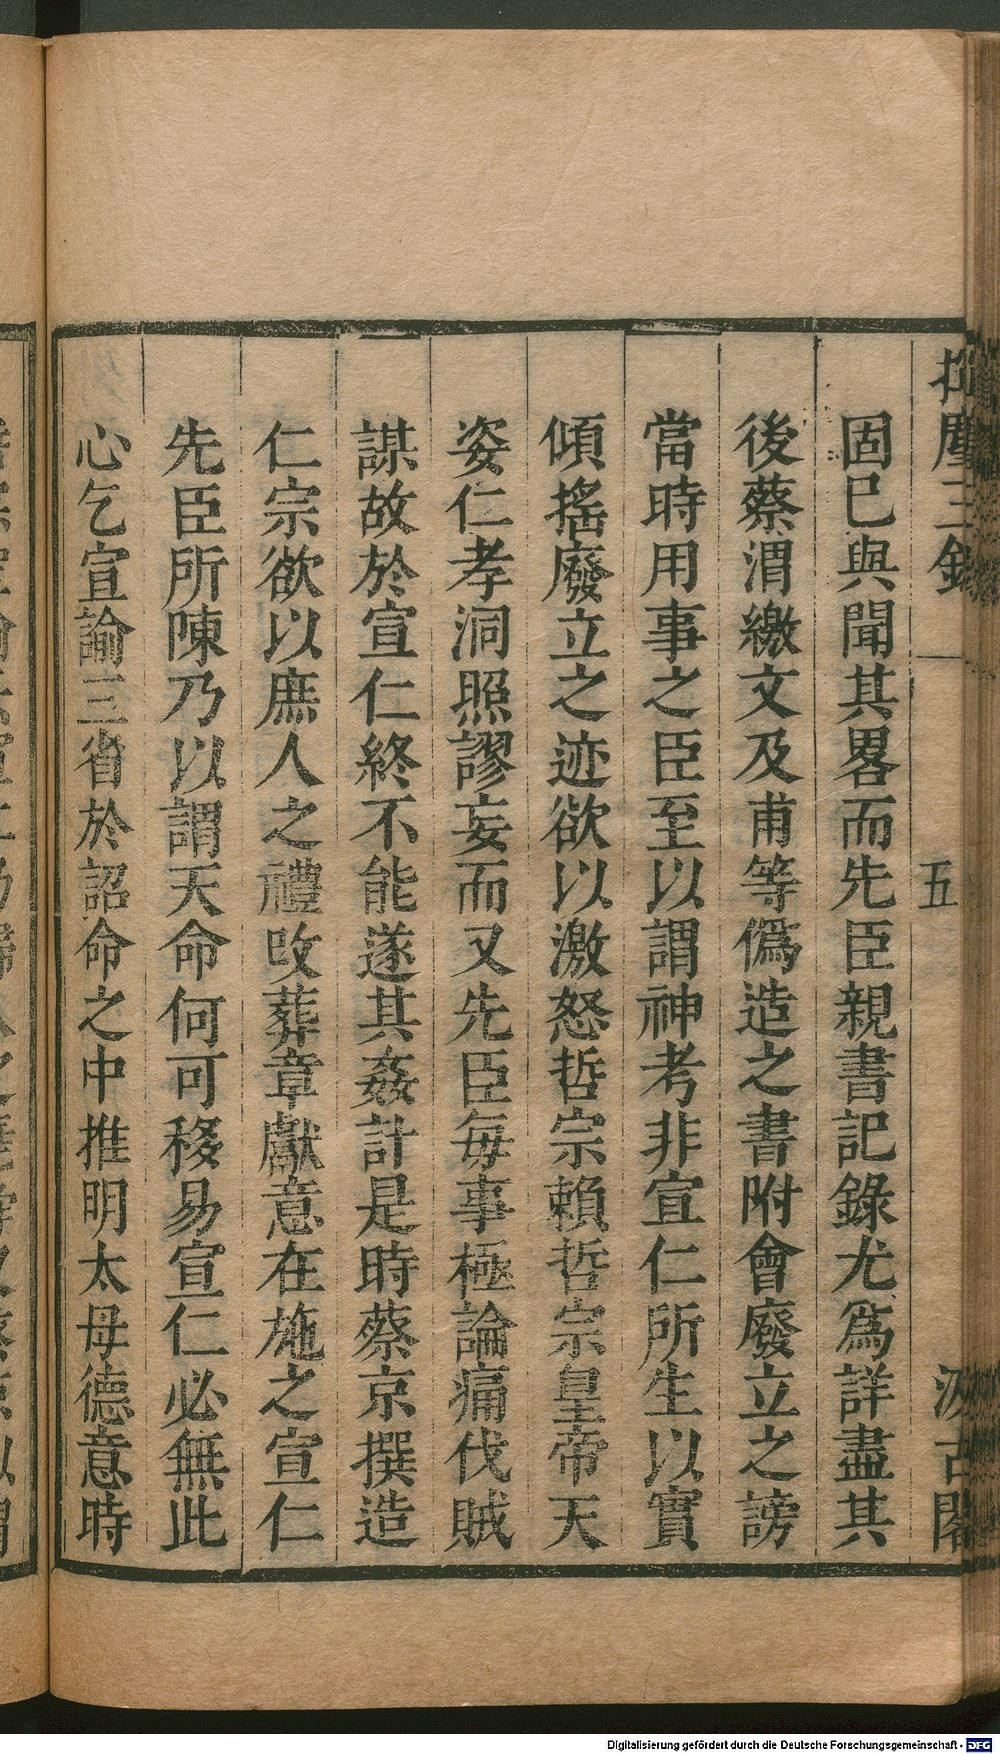 三錄
五
汲古閣
固巳與聞其畧而先臣親書記錄尤爲詳盡其
後蔡渭繳文及甫等僞造之書附會廢立之謗
當時用事之臣至以謂神考非宣仁所生以實
傾搖廢立之迹欲以激怒哲宗賴哲宗皇帝天
姿仁孝洞照謬妄而又先臣每事極論痛伐賊
謀故於宣仁終不能遂其姦計是時蔡京撰造
仁宗欲以庶人之禮改葬章獻意在施之宣仁
先臣所陳乃以謂天命何可移易宣仁必無此
心乞宣諭三省於詔命之中推明太母德意時
Digitalisierung gefördert durch die Deutsche Forschungsgemeinschaft - DFG